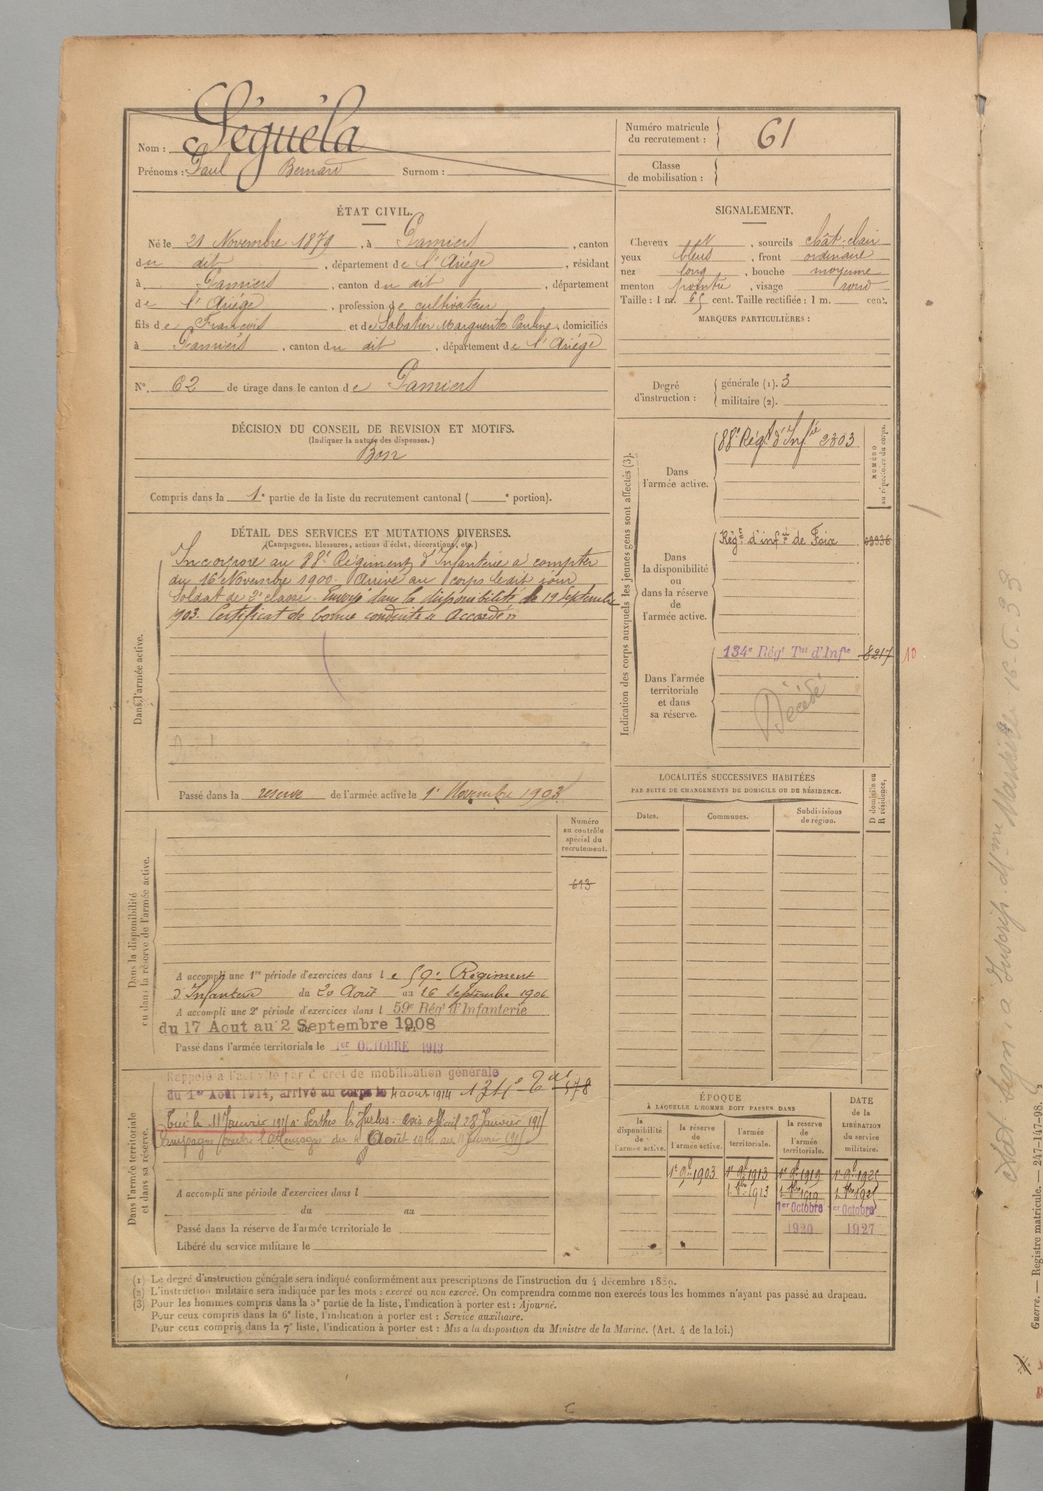 Nom : Séguéla
Prénoms : Paul Bernard Surnom :
Numéro matricule du recrutement : 61
Classe de mobilisation :
ÉTAT CIVIL.
Né le 21 Novembre 1879, à Pamiers, canton
du dit, département de l'Ariége, résidant
à Pamiers, canton du dit, département
de l'Ariége, profession de cultivateur
fils de François et de Sabatier Marguerite Pauline, domiciliés
à Pamiers, canton du dit, département de l'Ariége
N° 62 de tirage dans le canton de Pamiers
SIGNALEMENT.
Cheveux et, sourcils chât. clair
yeux bleus, front ordinaire
nez long, bouche moyenne
menton pointu, visage rond
Taille : 1 m. 65 cent. Taille rectifiée : 1 m. cent.
MARQUES PARTICULIÈRES :
Degré d'instruction : générale (1). 3
militaire (2).
DÉCISION DU CONSEIL DE REVISION ET MOTIFS.
(Indiquer la nature des dispenses.)
Bon
Compris dans la 1e partie de la liste du recrutement cantonal ( e portion).
DÉTAIL DES SERVICES ET MUTATIONS DIVERSES.
(Campagnes, blessures, actions d'éclat, décorations, etc.)
Dans l'armée active.
Incorporé au 88e Régiment d'Infanterie à compter
du 16 Novembre 1900. Arrivé au corps ledit jour
Soldat de 2e classe. Envoyé dans la disponibilité le 19 Septembre
1903. Certificat de bonne conduite "Accordé"
Passé dans la reserve de l'armée active le 1er Novembre 1903
Indication des corps auxquels les jeunes gens sont affectés (3).
NUMÉRO au répertoire du corps.
Dans l'armée active.
88e Régt d'Infie 2303
Dans la disponibilité ou dans la réserve de l'armée active.
Régt d'infie de Foix
Dans l'armée territoriale et dans sa réserve.
134e Régt Tal d'Infie 8217
Décédé
LOCALITÉS SUCCESSIVES HABITÉES
PAR SUITE DE CHANGEMENTS DE DOMICILE OU DE RÉSIDENCE.
Dates. Communes. Subdivisions de région.
D domicile ou R résidence.
Dans la disponibilité ou dans la réserve de l'armée active.
Numéro au contrôle spécial du recrutement.
613
A accompli une 1re période d'exercices dans le 59e Régiment
d'Infanterie du 20 Août au 16 Septembre 1906
A accompli une 2e période d'exercices dans l 59e Régt d'Infanterie
du 17 Aout au 2 Septembre 1908
Passé dans l'armée territoriale le 1er OCTOBRE 1913
Dans l'armée territoriale et dans sa réserve.
Rappelé à l'activité par décret de mobilisation générale
du 1er Août 1914, arrivé au corps le 4 août 1914 134e Tal
Tué le 11 Janvier 1915 à Perthes les Hurlus. Avis officiel 28 Janvier 1915
Campagnes contre l'Allemagne du 4 Août 1914 au 11 Janvier 1915
A accompli une période d'exercices dans l
du au
Passé dans la réserve de l'armée territoriale le
Libéré du service militaire le
ÉPOQUE
À LAQUELLE L'HOMME DOIT PASSER DANS
la disponibilité de l'armée active.
la réserve de l'armée active.
l'armée territoriale.
la réserve de l'armée territoriale.
DATE de la LIBÉRATION du service militaire.
1er 9bre 1903 1er 9bre 1913 1er 9bre 1919
1913 1919
1er Octobre 1920
er Octobre 1927
(1) Le degré d'instruction générale sera indiqué conformément aux prescriptions de l'instruction du 4 décembre 1889.
(2) L'instruction militaire sera indiquée par les mots : exercé ou non exercé. On comprendra comme non exercés tous les hommes n'ayant pas passé au drapeau.
(3) Pour les hommes compris dans la 5e partie de la liste, l'indication à porter est : Ajourné.
Pour ceux compris dans la 6e liste, l'indication à porter est : Service auxiliaire.
Pour ceux compris dans la 7e liste, l'indication à porter est : Mis à la disposition du Ministre de la Marine. (Art. 4 de la loi.)
Guerre. — Registre matricule. — 247-147-98.